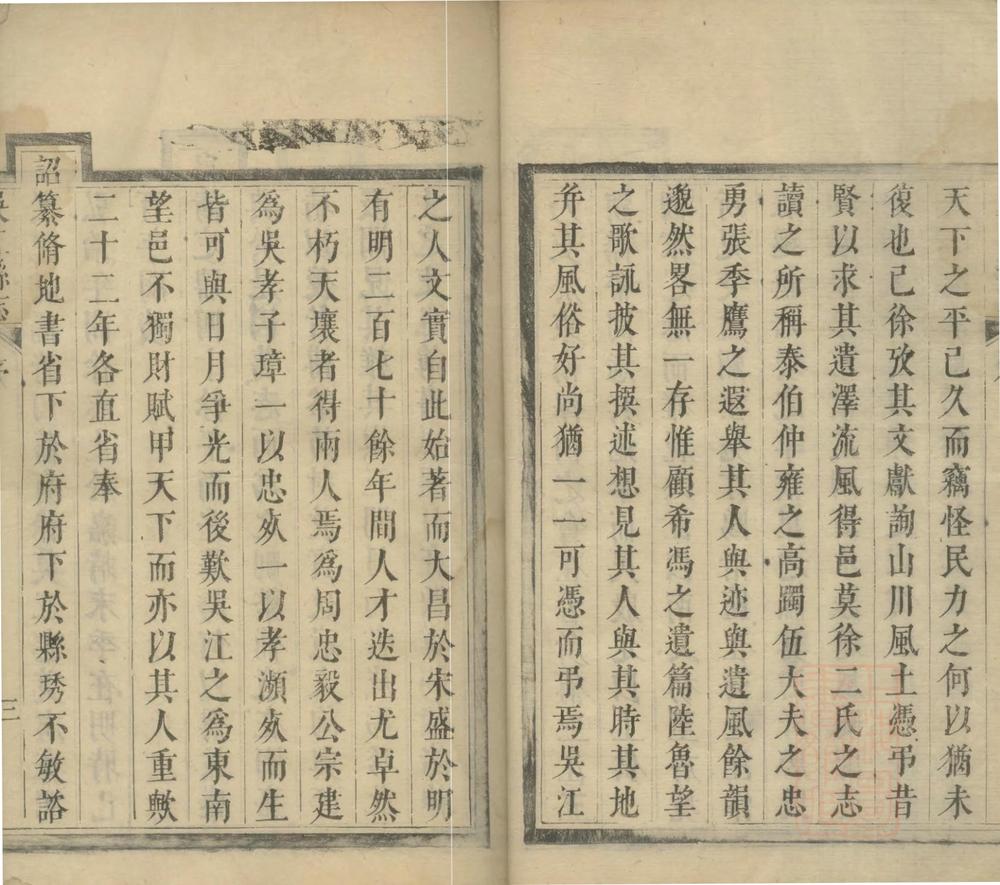 天下之平已久而竊怪民力之何以猶未
復也已徐攷其文獻詢山川風土憑弔昔
賢以求其遺澤流風得邑莫徐二氏之志
讀之所稱泰伯仲雍之高躅伍大夫之忠
勇張季鷹之遐舉其人與迹與遺風餘韻
邈然畧無一存惟顧希馮之遺篇陸魯望
之歌詠披其撰述想見其人與其時其地
弁其風俗好尚猶一一可憑而弔焉吳江
之人文實自此始著而大昌於宋盛於明
有明二百七十餘年間人才迭出尤卓然
不朽天壤者得兩人焉爲周忠毅公宗建
爲吳孝子璋一以忠死一以孝瀕死而生
皆可與日月爭光而後歎吳江之爲東南
望邑不獨財賦甲天下而亦以其人重歟
二十二年各直省奉
詔纂脩地書省下於府府下於縣琇不敏謚
三